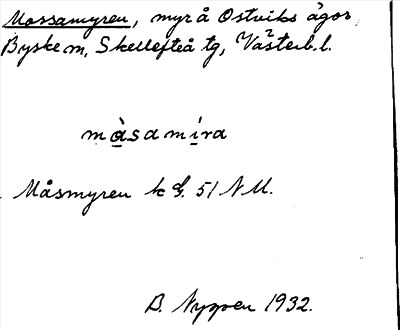 Mossamyren, myr å Ostviks ägor
Byske sn, Skellefteå tg, Västerb. l.
mȧ̱sami̱ra
Måsmyren k 51 NU.
B. Nygren 1932.